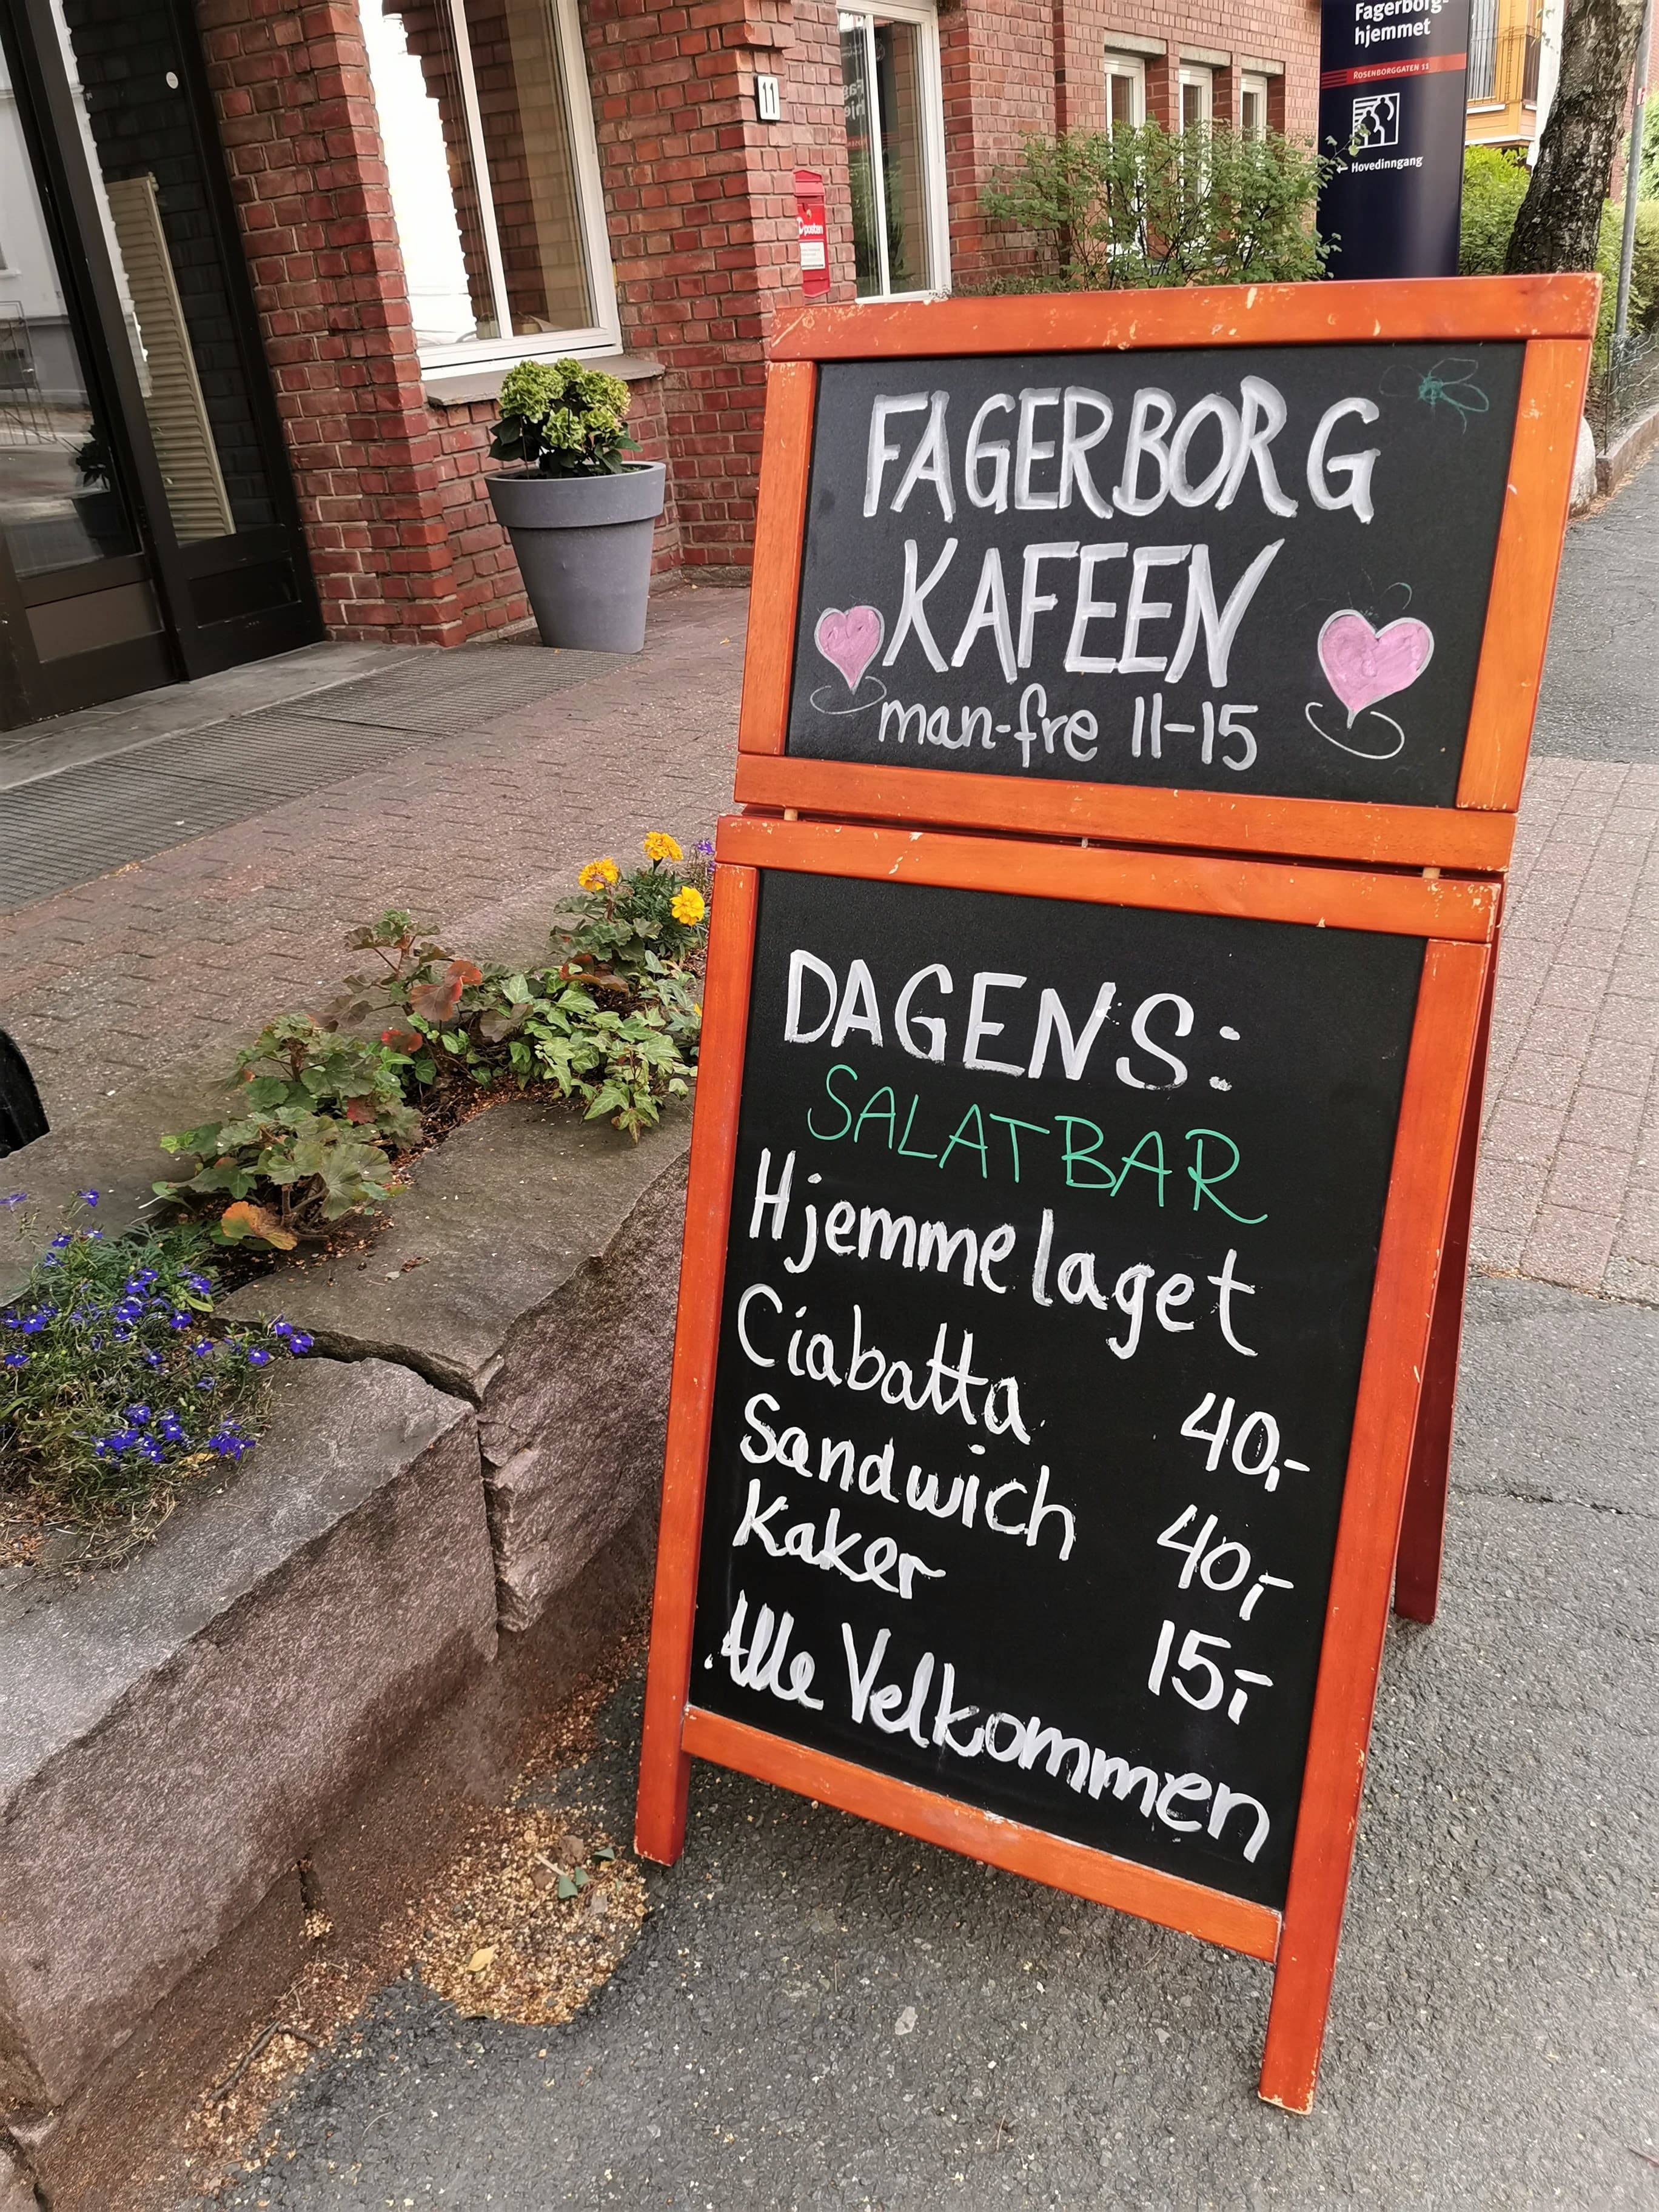 Fagerborg-
hjemmet
ROSENBORGGATEN 11
← Hovedinngang
11
posten
FAGERBORG
KAFEEN
man-fre 11-15
DAGENS:
SALATBAR
Hjemmelaget
Ciabatta 40,-
Sandwich 40,-
Kaker 15,-
Alle Velkommen